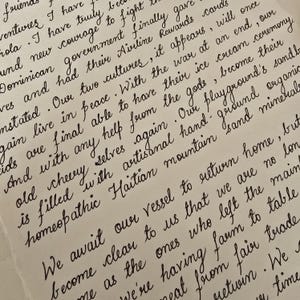 friends
ventures. I have truly bec
hola. I have
und new courage to fight t
Dominican government finally gave
ves and had their Airline Rewards cards
instated. Our two cultures, it appears, will once
again live in peace. With the war at an end, our
kids are final able to have their ice cream ceremony
. And with any help from the gods, become their
old cherry selves again. Our playground's sandb
is filled with artisanal hand-ground organic
homeopathic Haitian mountain sand minerals
We await our vessel to return home, but
become clear to us that we are no lon
me as the ones who left the main
we're having farm to table
meat from fair trade
return. We
time